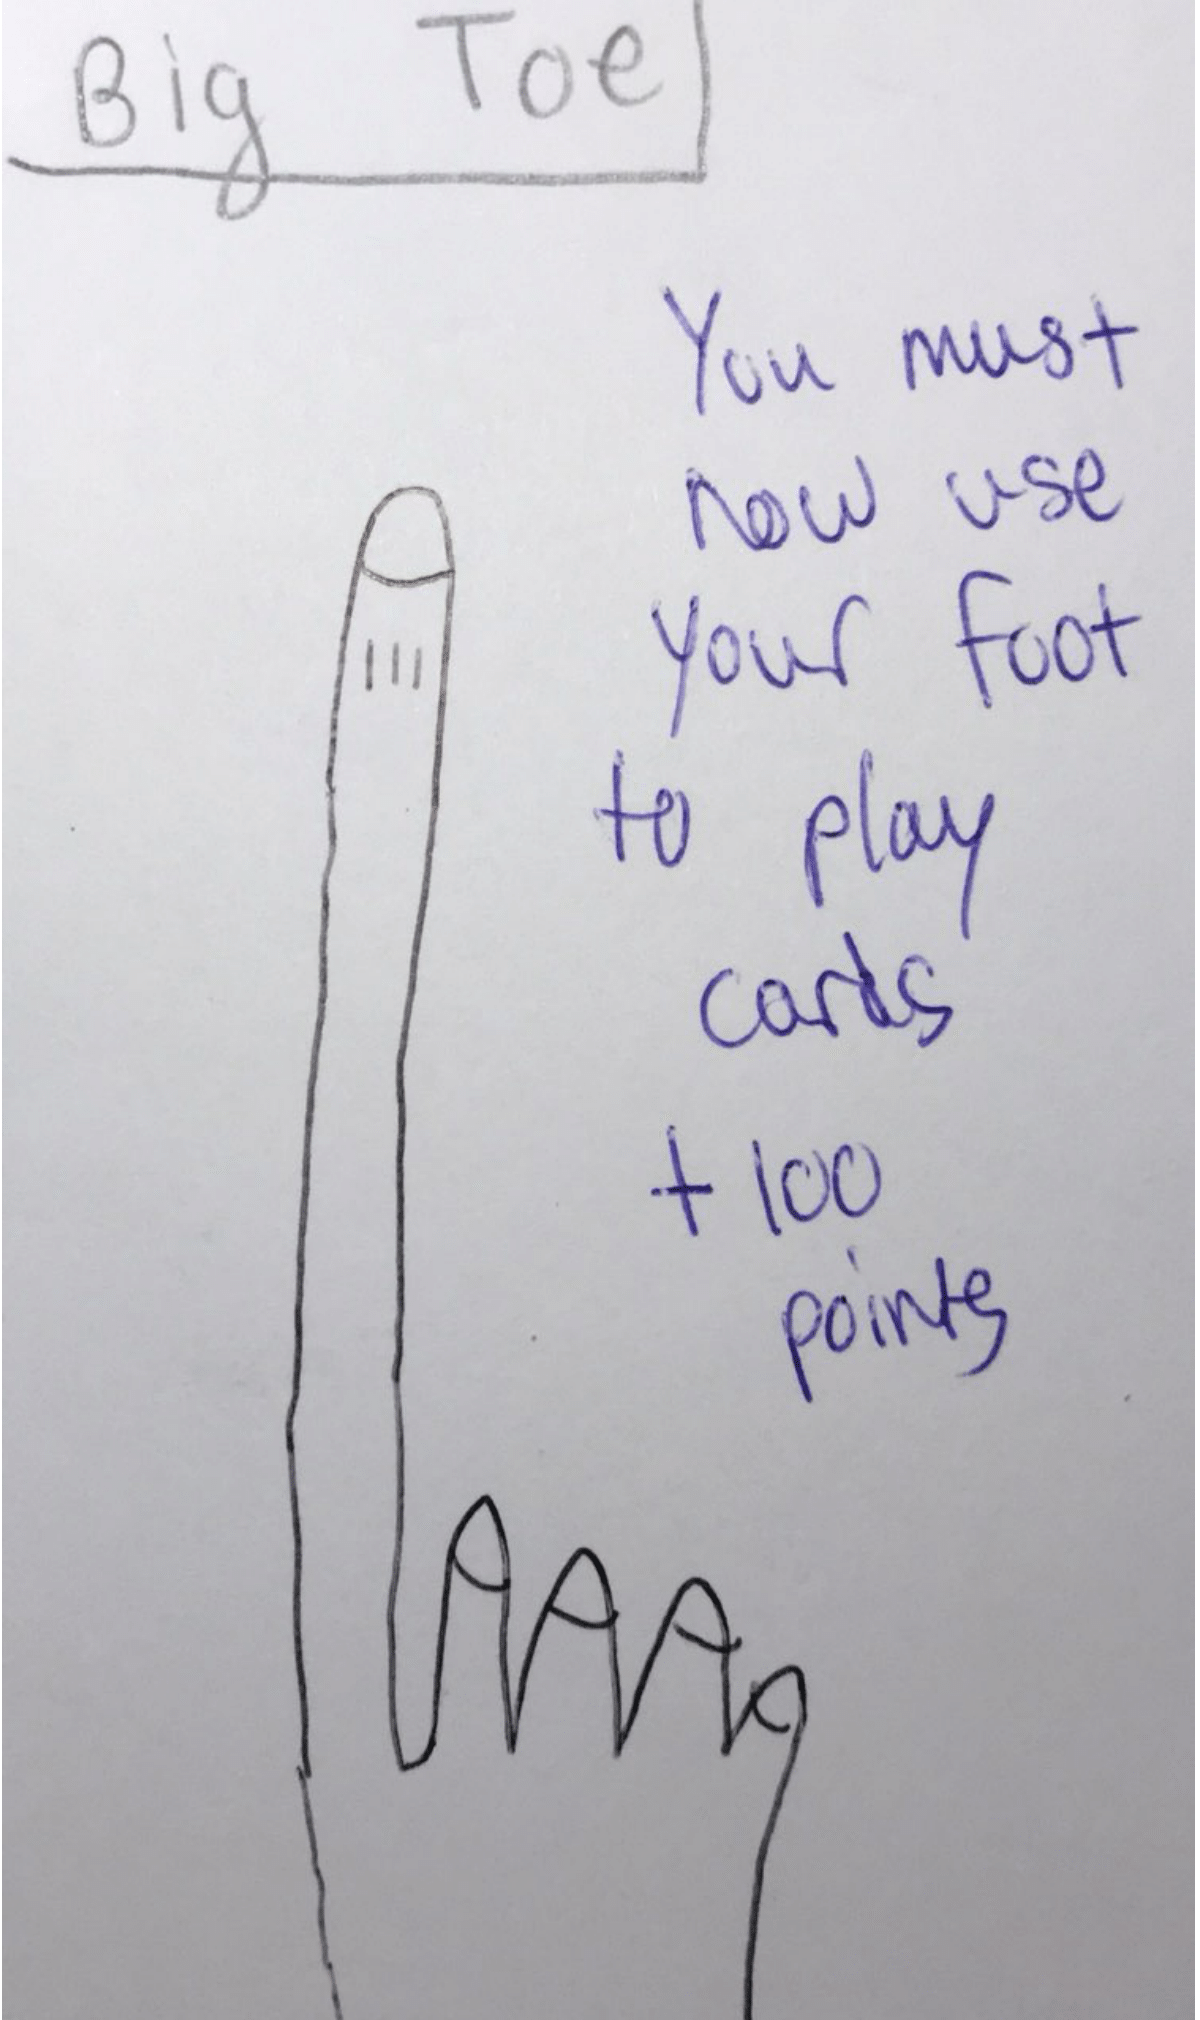 Big Toe
You must
now use
your foot
to play
cards
+ 100
points